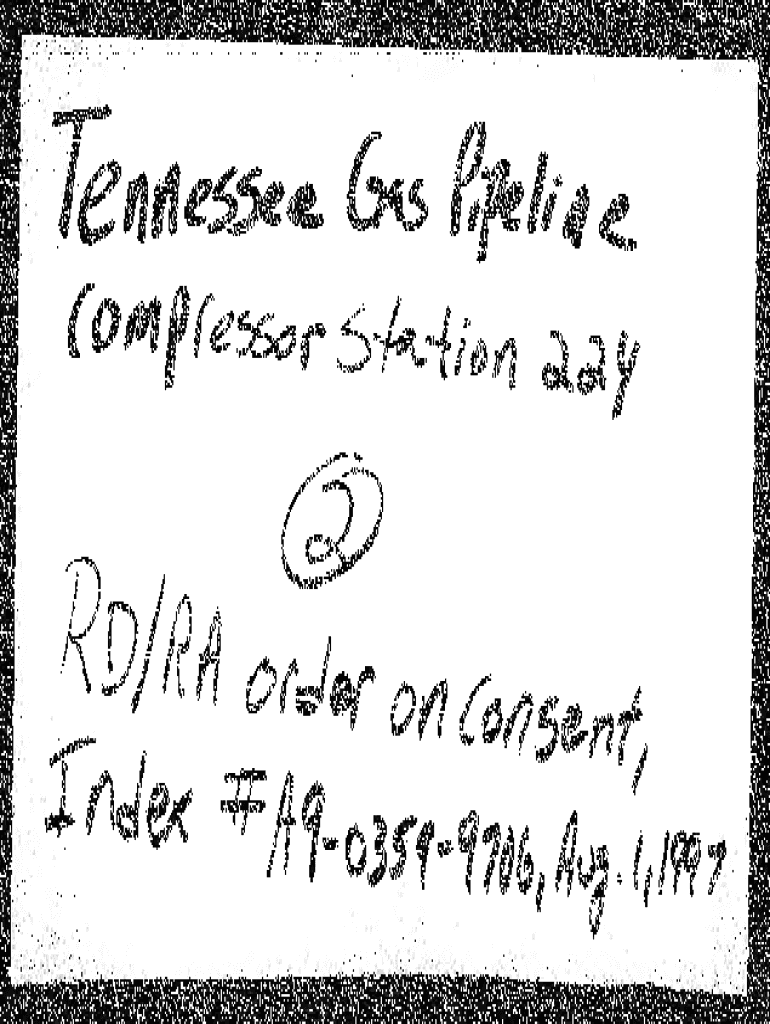 Tennessee Gas Pipeline
Compressor Station 224
2
RD/RA order on Consent,
Index # A9-0359-9706, Aug. 1, 1997